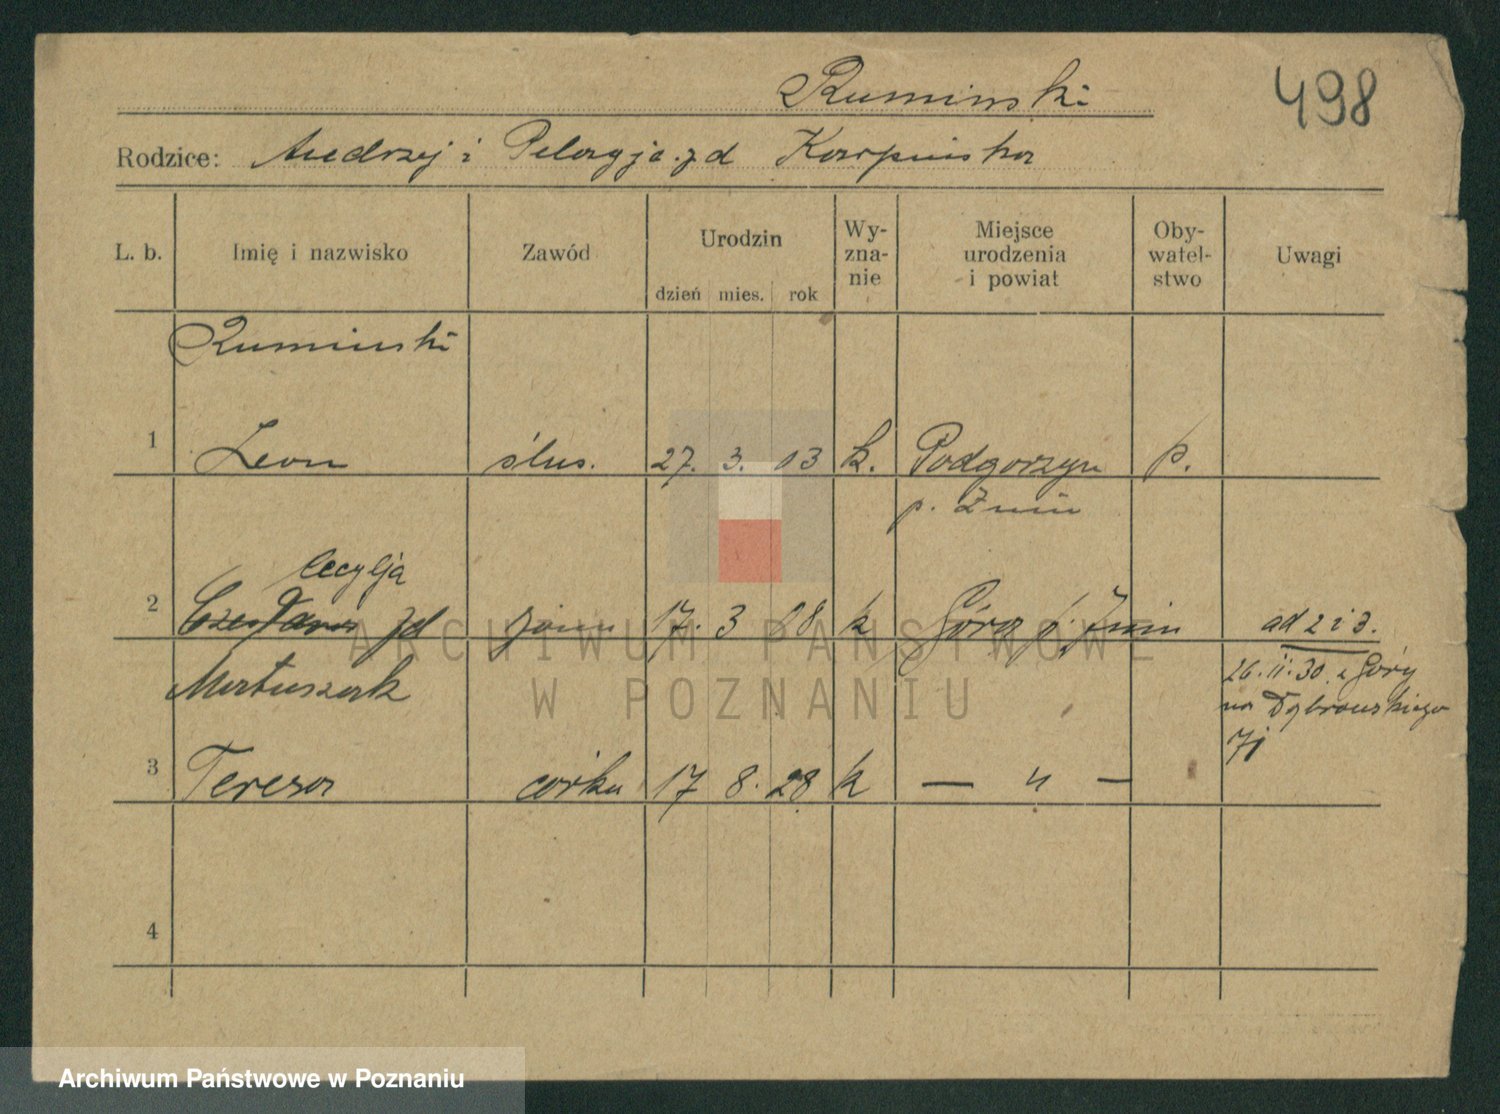 Rumiński
498
Rodzice: Andrzej i Pelagja zd Karpińska
L. b. Imię i nazwisko Zawód Urodzin dzień mies. rok Wy-zna-nie Miejsce urodzenia i powiat Oby-watel-stwo Uwagi
Rumiński
1 Leon ślus. 27. 3. 03 k. Podgorzyn p.
p. Żnin
Cecylja
2 Czesława zd żona 17. 3 08 k Góra p. Żnin ad 2 i 3.
Matuszak 26.11.30. z Góry
na Dąbrowskiego
71
3 Teresa córka 17 8. 28 k — " —
4
ARCHIWUM PAŃSTWOWE
W POZNANIU
Archiwum Państwowe w Poznaniu